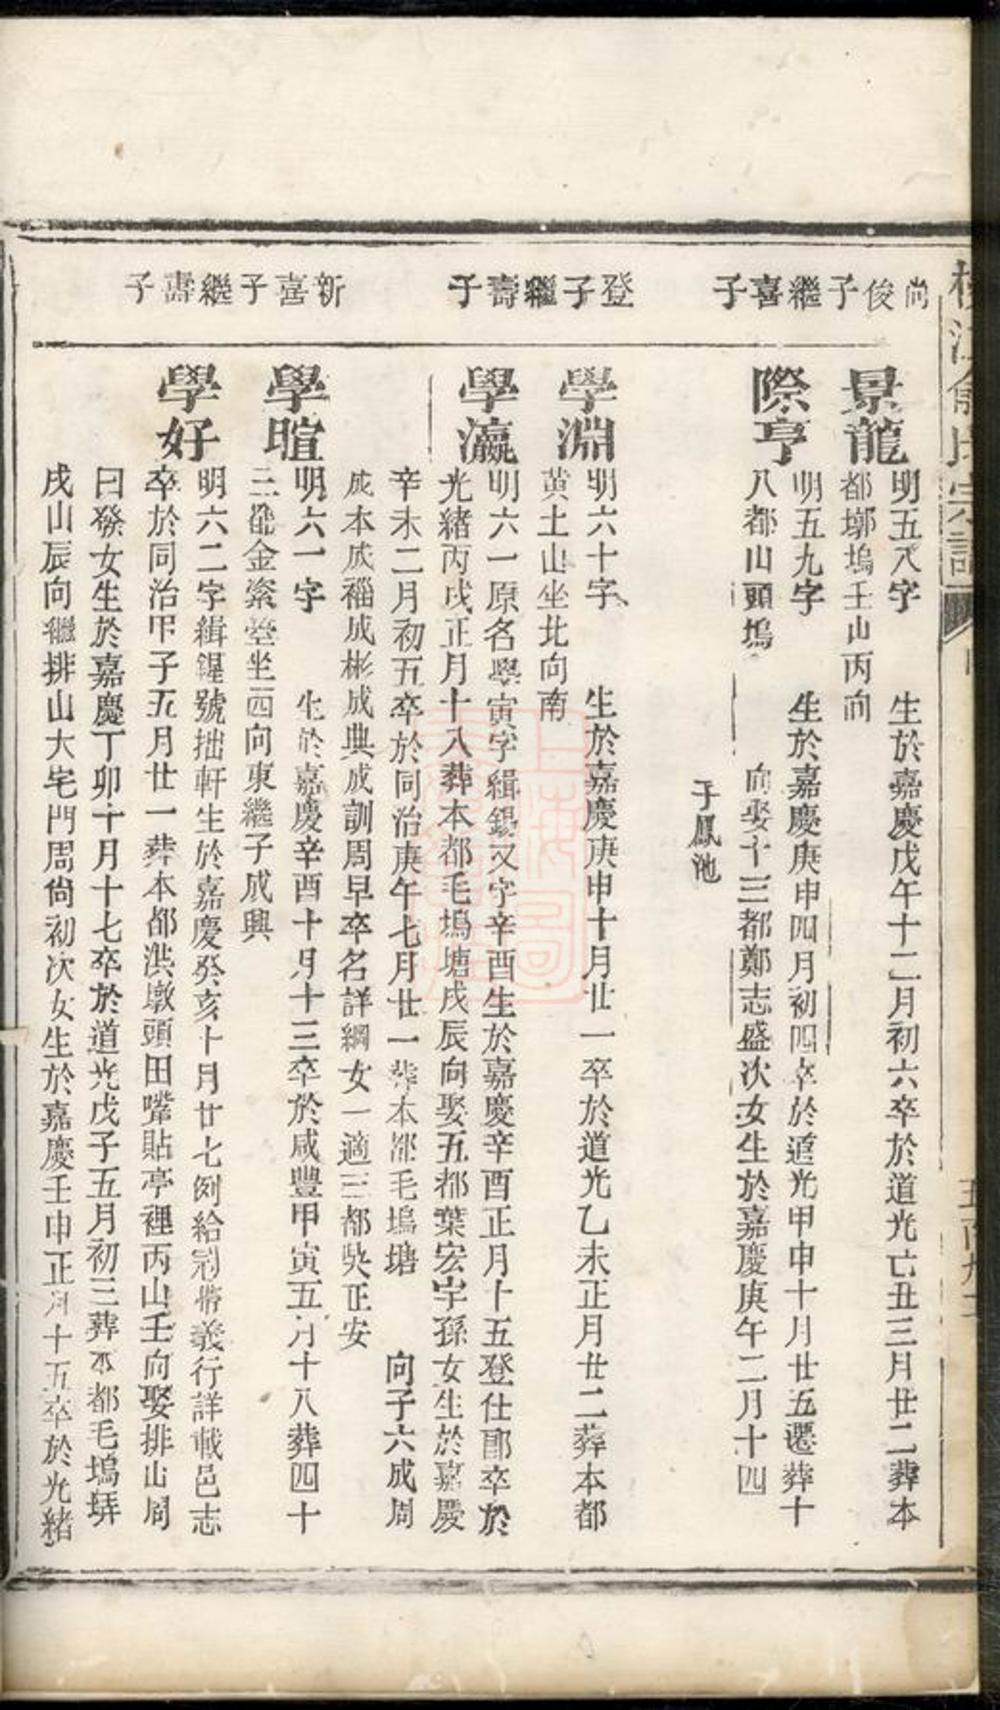 尚俊子繼喜子
登子繼壽子
新喜子繼壽子
景龍
明五八字 生於嘉慶戊午十二月初六卒於道光亡丑三月廿二葬本
都塢壬山丙向
際亨
明五九字 生於嘉慶庚申四月初四卒於道光甲申十月廿五遷葬十
八都山頭塢 向娶十三都鄭志盛次女生於嘉慶庚午二月十四
子鳳池
學淵
明六十字 生於嘉慶庚申十月廿一卒於道光乙未正月廿二葬本都
黄土山坐北向南
學瀛
明六一原名學寅字緝錫又字辛酉生於嘉慶辛酉正月十五登仕郎卒於
光緒丙戌正月十八葬本都毛塢塘戌辰向娶五都葉宏宇孫女生於嘉慶
辛未二月初五卒於同治庚午七月廿一葬本都毛塢塘 向子六成周
成本成福成彬成典成訓周早卒名詳綱女一適三都吳正安
學暄
明六一字 生於嘉慶辛酉十月十三卒於咸豐甲寅五月十八葬四十
三都金盤坐西向東繼子成興
學好
明六二字緝鍟號拙軒生於嘉慶癸亥十月廿七例給冠帶義行詳載邑志
卒於同治甲子五月廿一葬本都洪墩頭田嘴貼亭裡丙山壬向娶排山周
曰發女生於嘉慶丁卯十月十七卒於道光戊子五月初三葬本都毛塢
戌山辰向繼排山大宅門周尙初次女生於嘉慶壬申正月十五卒於光緒